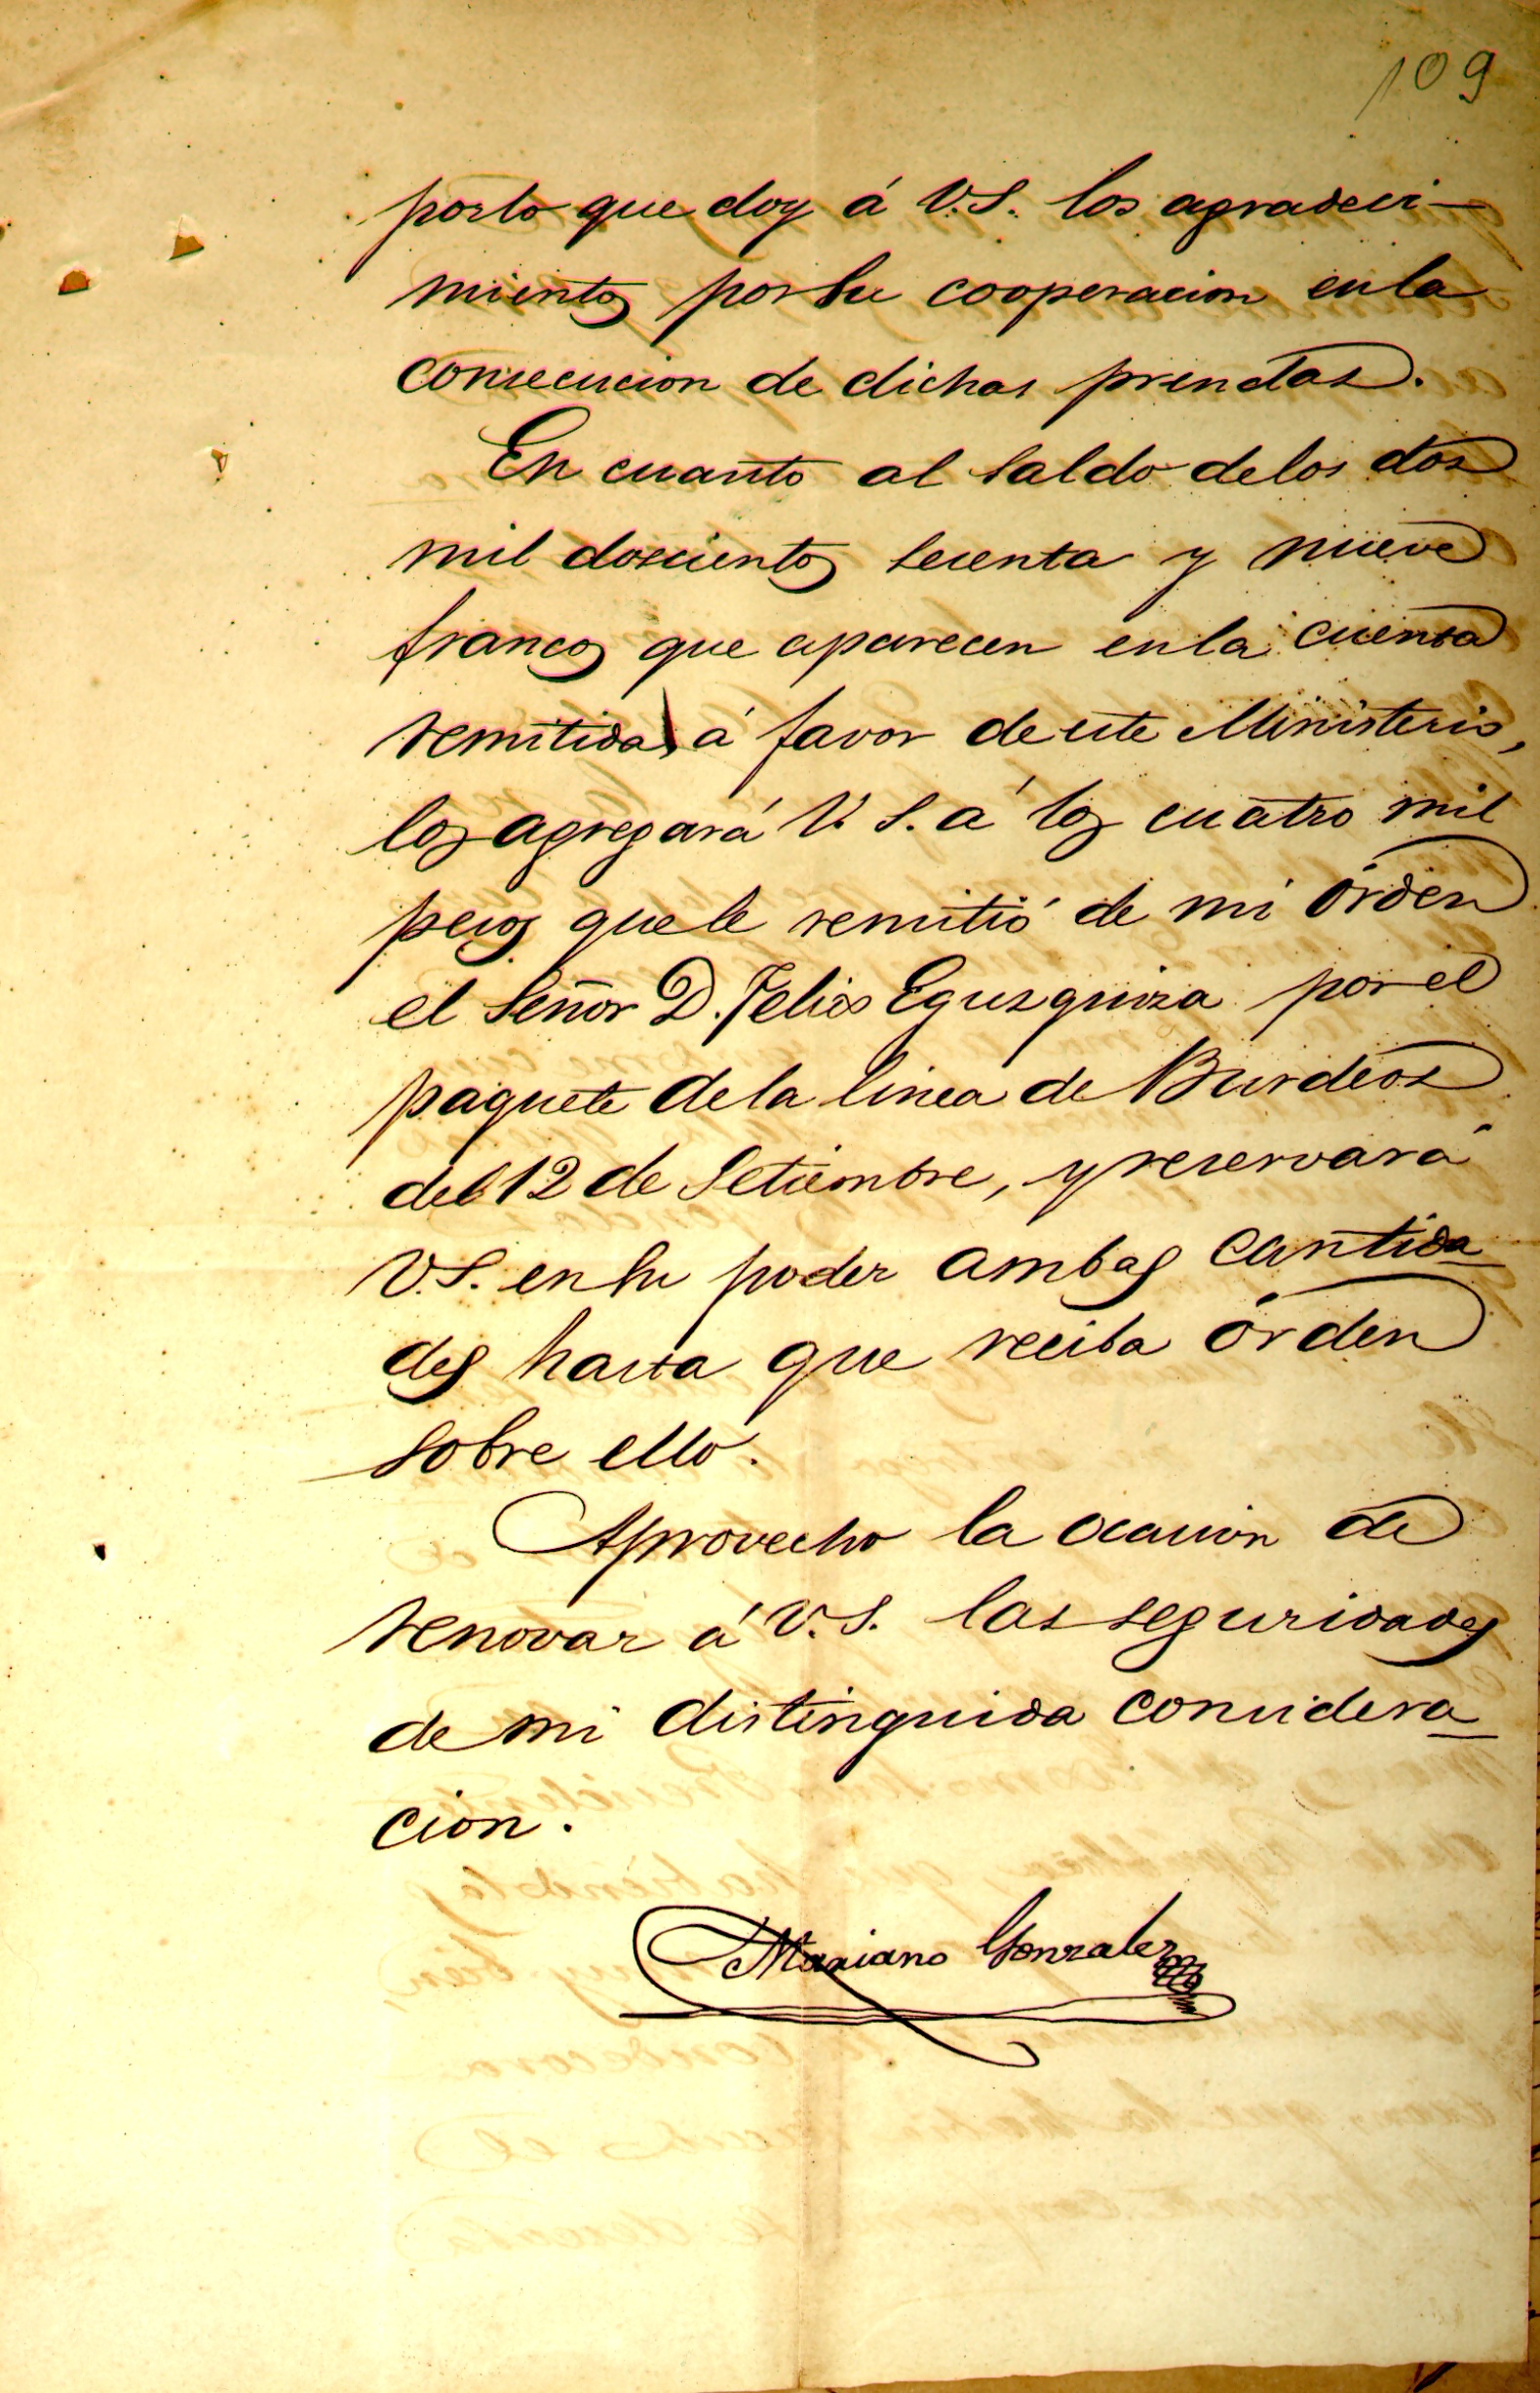 109
por lo que doy á V.S. los agradeci-
mientos por su cooperacion en la
consecucion de dichas prendas.
En cuanto al saldo de los dos
mil doscientos secenta y nueve
francos que aparecen en la cuenta
remitida á favor de este Ministerio,
los agregará V. S. á los cuatro mil
pesos que le remitió de mi órden
el Señor D. Felix Egusquiza por el
paquete de la linea de Burdeos
del 12 de Setiembre, y reservará
V.S. en su poder ambas cantida-
des hasta que reciba órden
sobre ello.
Aprovecho la ocasion de
renovar á V.S. las seguridades
de mi distinguida considera-
cion.
Mariano Gonzalez